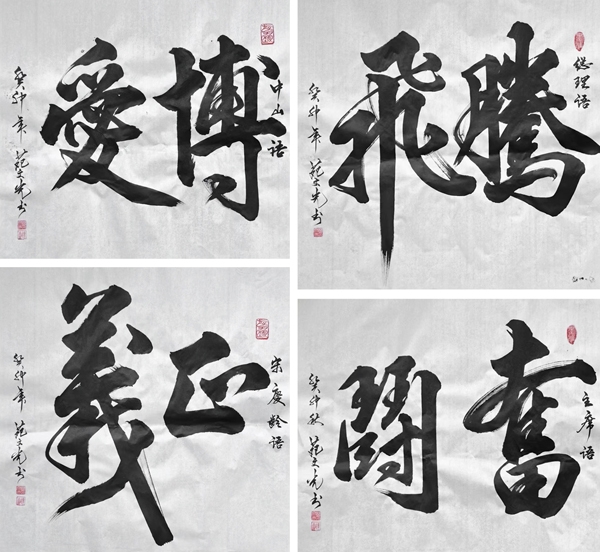 中山语
博愛
癸卯年 范文光书
总理语
騰飛
癸卯年 范文光书
宋慶齡语
正義
癸卯年 范文光书
主席语
奮鬪
癸卯秋 范文光书